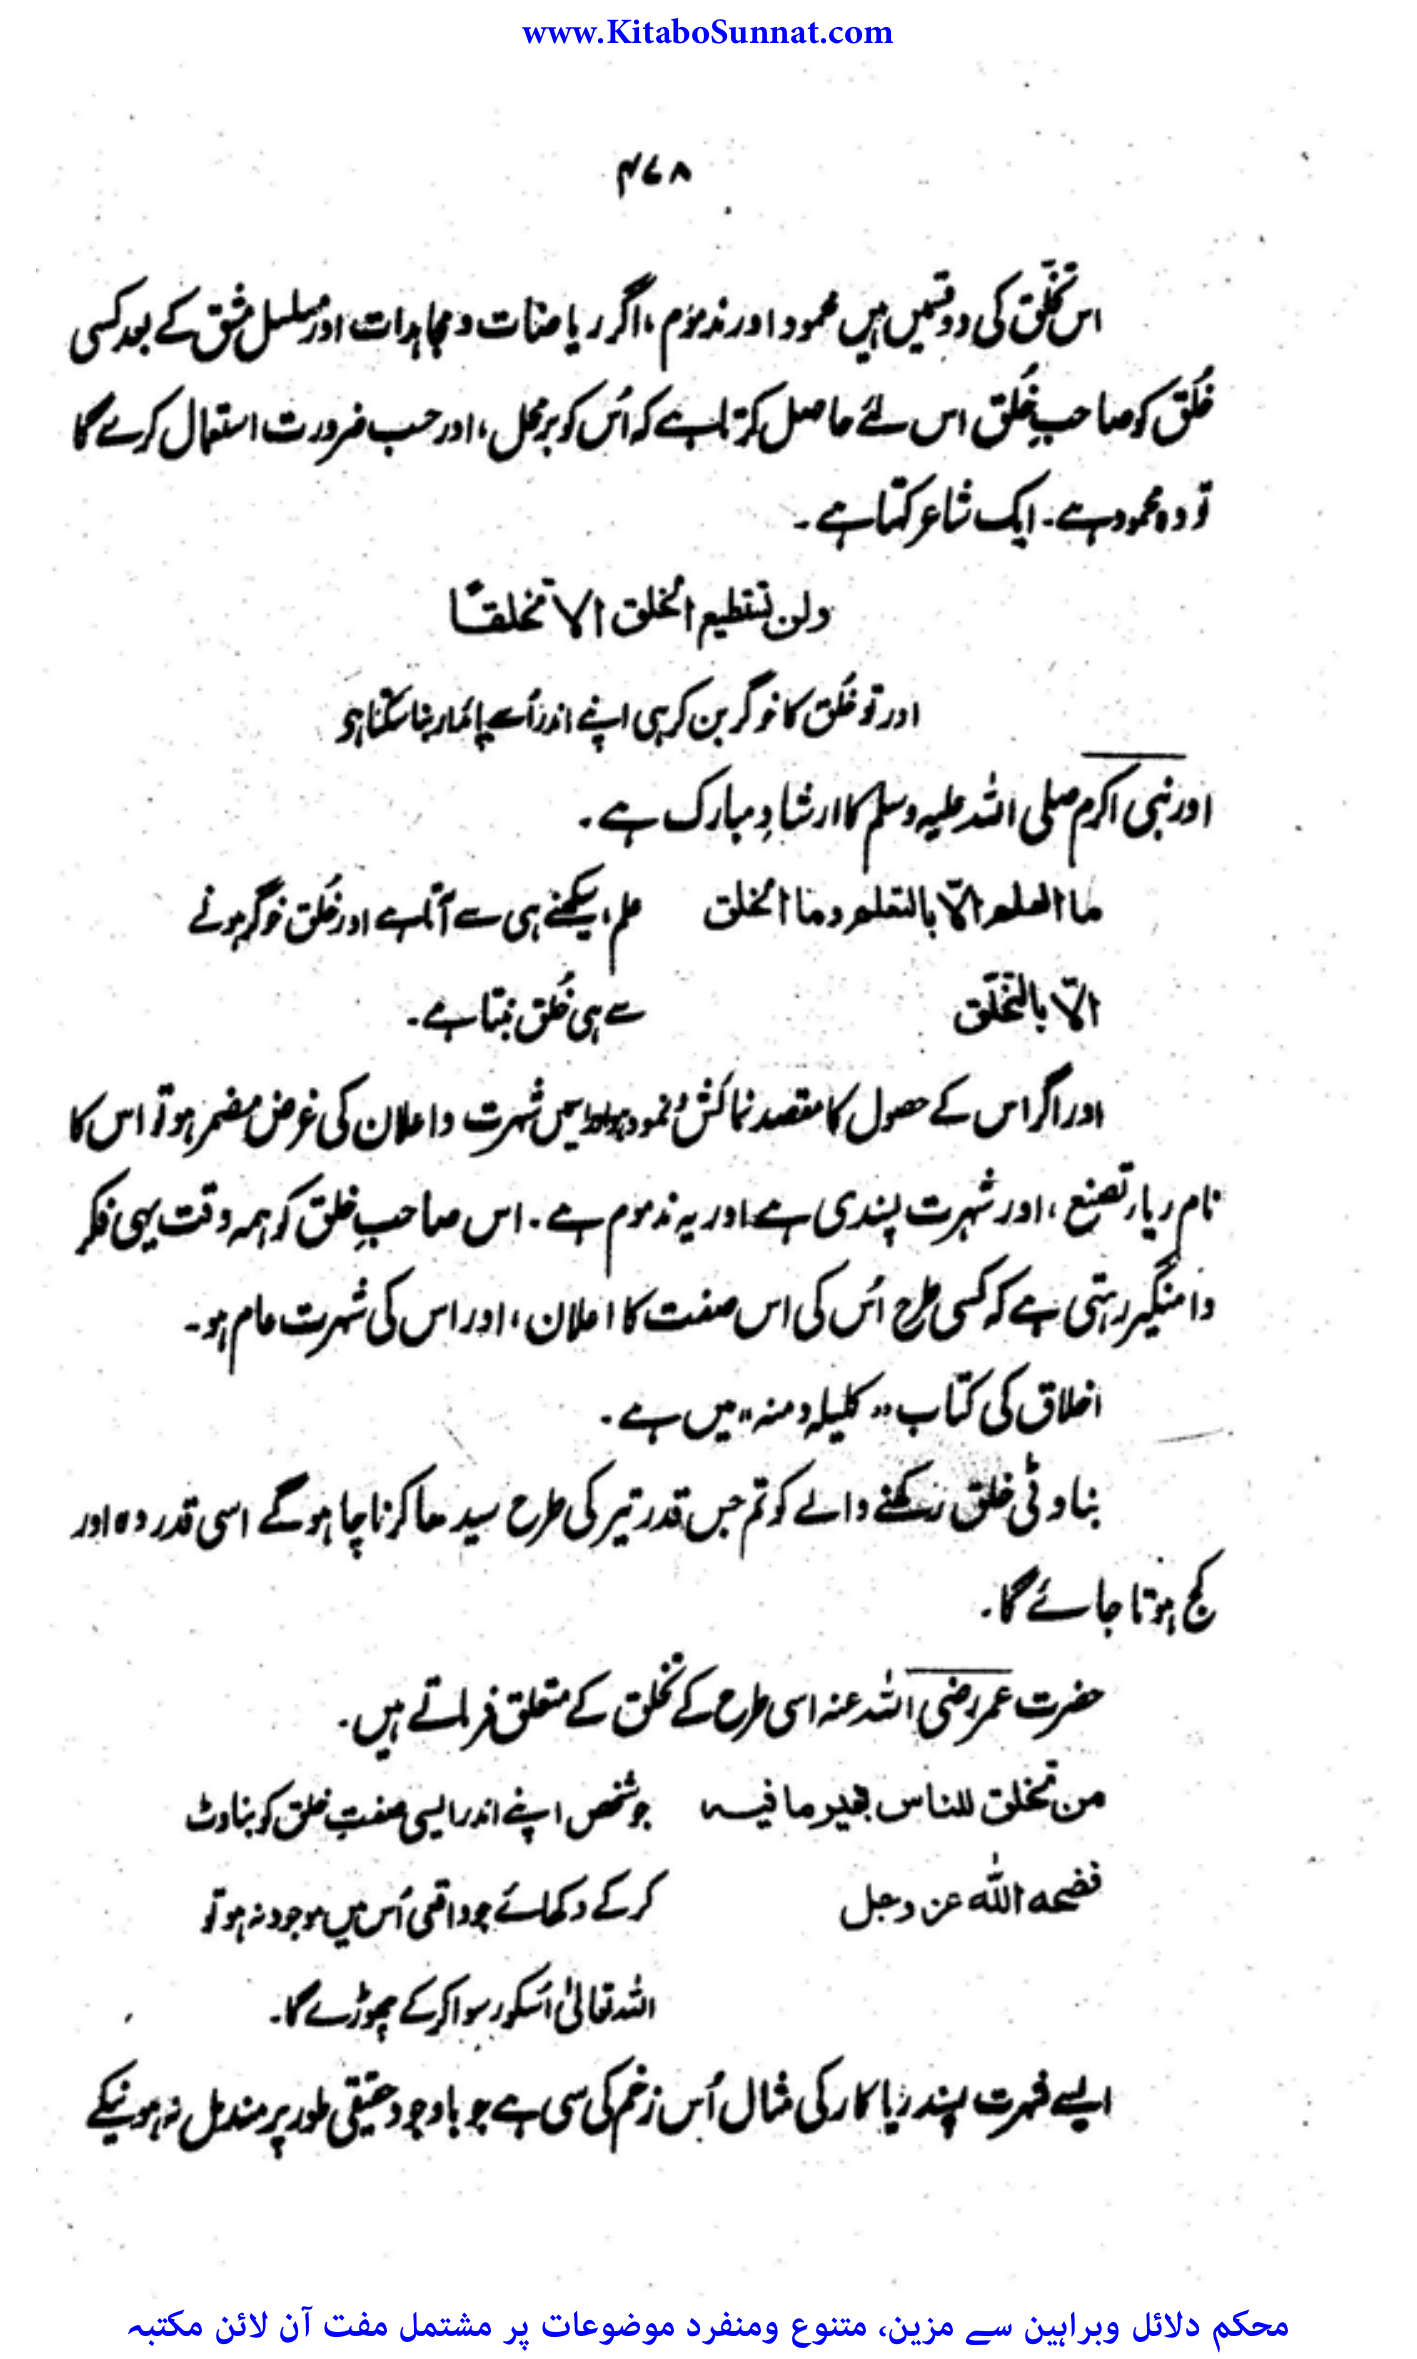 www.KitaboSunnat.com
۴۷۸
اس تخلّق کی دو قسمیں ہیں محمود اور مذموم، اگر ریاضات و مجاہدات اور مسلسل مشق کے بعد کسی
خُلق کو صاحبِ خُلق اس لئے حاصل کرتا ہے کہ اُس کو برمحل، اور حسب ضرورت استعمال کرے گا
تو وہ محمود ہے۔ ایک شاعر کہتا ہے۔
ولن تستطیع الخُلق الا تخلقًا
اور تو خُلق کا خوگر بن کر ہی اپنے اندر اُسے پائدار بنا سکتا ہو
اور نبی اکرم صلی اللہ علیہ وسلم کا ارشادِ مبارک ہے۔
ما العلم الّا بالتعلم وما الخُلق علم، سیکھنے ہی سے آتا ہے اور خُلق خوگر ہونے
الّا بالتخلّق سے ہی خُلق بنتا ہے۔
اور اگر اس کے حصول کا مقصد نمائش و نمود ہو اور اسمیں شہرت و اعلان کی غرض مضمر ہو تو اس کا
نام ریار تصنع، اور شہرت پسندی ہے اور یہ مذموم ہے۔ اس صاحبِ خلق کو ہمہ وقت یہی فکر
دامنگیر رہتی ہے کہ کسی طرح اُس کی اس صفت کا اعلان، اور اس کی شہرت عام ہو۔
اخلاق کی کتاب "کلیلہ و منہ" میں ہے۔
بناوٹی خلق رکھنے والے کو تم جس قدر تیر کی طرح سیدھا کرنا چاہو گے اسی قدر وہ اور
کج ہوتا جائے گا۔
حضرت عمر رضی اللہ عنہ اسی طرح کے تخلق کے متعلق فرماتے ہیں۔
من تخلق للناس بغیر ما فیہ جو شخص اپنے اندر ایسی صفتِ خلق کو بناوٹ
فضحہ اللہ عز وجل کر کے دکھائے جو واقعی اُس میں موجود نہ ہو تو
اللہ تعالیٰ اسکو رسوا کر کے چھوڑے گا۔
ایسے شہرت پسند ریا کار کی مثال اُس زخم کی سی ہے جو باوجود حقیقی طور پر مندمل نہ ہونیکے
محکم دلائل وبراہین سے مزین، متنوع ومنفرد موضوعات پر مشتمل مفت آن لائن مکتبہ